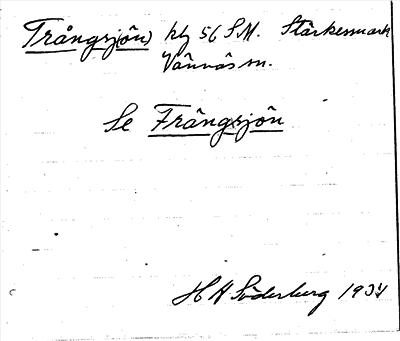 Trångsjön) hly 56 S.M. Stärkesmark
Vännäs sn.
Se Frångsjön
H A Söderberg 1934